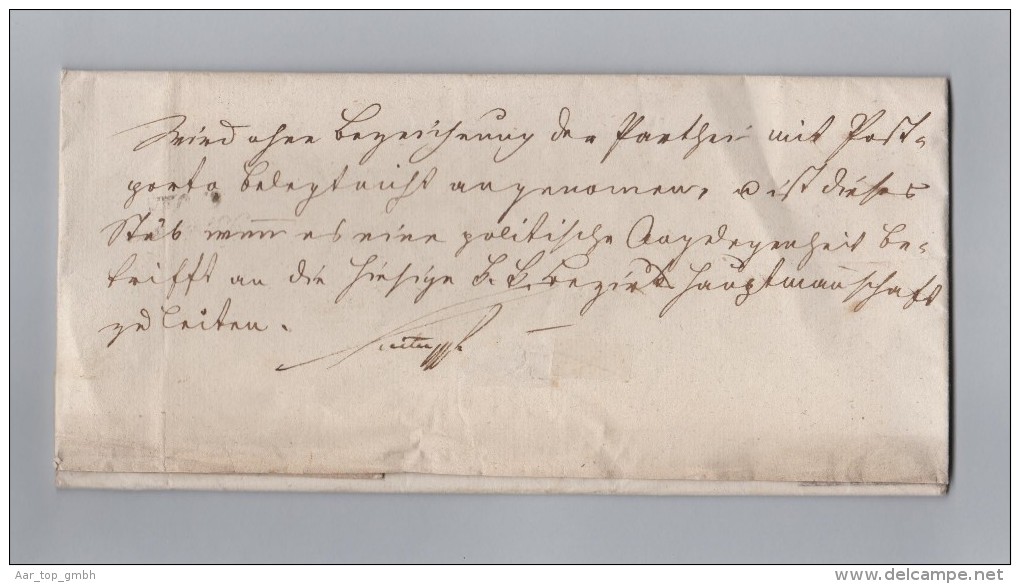 Wird ohne Bezeichnung der Parthei mit Post-
porto belegt nicht angenomen, u ist dieses
Stük wenn es eine politische Angelegenheit be-
trifft an die hiesige k. k. Bezirks Hauptmannschaft
zu leiten.
Aar_top_gmbh
delcampe.net